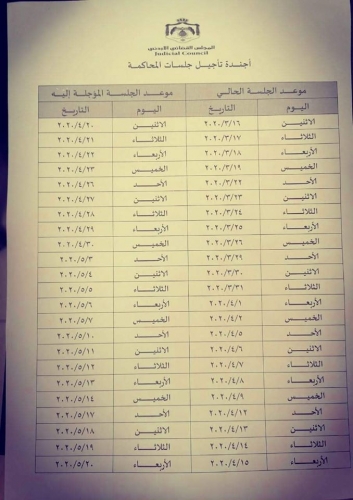 المجلس القضائي الأردني
Judicial Council
أجندة تأجيل جلسات المحاكمة
موعد الجلسة الحالي موعد الجلسة المؤجلة إليه
اليوم التاريخ اليوم التاريخ
الاثنين ٢٠٢٠/٣/١٦ الاثنين ٢٠٢٠/٤/٢٠
الثلاثاء ٢٠٢٠/٣/١٧ الثلاثاء ٢٠٢٠/٤/٢١
الأربعاء ٢٠٢٠/٣/١٨ الأربعاء ٢٠٢٠/٤/٢٢
الخميس ٢٠٢٠/٣/١٩ الخميس ٢٠٢٠/٤/٢٣
الأحد ٢٠٢٠/٣/٢٢ الأحد ٢٠٢٠/٤/٢٦
الاثنين ٢٠٢٠/٣/٢٣ الاثنين ٢٠٢٠/٤/٢٧
الثلاثاء ٢٠٢٠/٣/٢٤ الثلاثاء ٢٠٢٠/٤/٢٨
الأربعاء ٢٠٢٠/٣/٢٥ الأربعاء ٢٠٢٠/٤/٢٩
الخميس ٢٠٢٠/٣/٢٦ الخميس ٢٠٢٠/٤/٣٠
الأحد ٢٠٢٠/٣/٢٩ الأحد ٢٠٢٠/٥/٣
الاثنين ٢٠٢٠/٣/٣٠ الاثنين ٢٠٢٠/٥/٤
الثلاثاء ٢٠٢٠/٣/٣١ الثلاثاء ٢٠٢٠/٥/٥
الأربعاء ٢٠٢٠/٤/١ الأربعاء ٢٠٢٠/٥/٦
الخميس ٢٠٢٠/٤/٢ الخميس ٢٠٢٠/٥/٧
الأحد ٢٠٢٠/٤/٥ الأحد ٢٠٢٠/٥/١٠
الاثنين ٢٠٢٠/٤/٦ الاثنين ٢٠٢٠/٥/١١
الثلاثاء ٢٠٢٠/٤/٧ الثلاثاء ٢٠٢٠/٥/١٢
الأربعاء ٢٠٢٠/٤/٨ الأربعاء ٢٠٢٠/٥/١٣
الخميس ٢٠٢٠/٤/٩ الخميس ٢٠٢٠/٥/١٤
الأحد ٢٠٢٠/٤/١٢ الأحد ٢٠٢٠/٥/١٧
الاثنين ٢٠٢٠/٤/١٣ الاثنين ٢٠٢٠/٥/١٨
الثلاثاء ٢٠٢٠/٤/١٤ الثلاثاء ٢٠٢٠/٥/١٩
الأربعاء ٢٠٢٠/٤/١٥ الأربعاء ٢٠٢٠/٥/٢٠